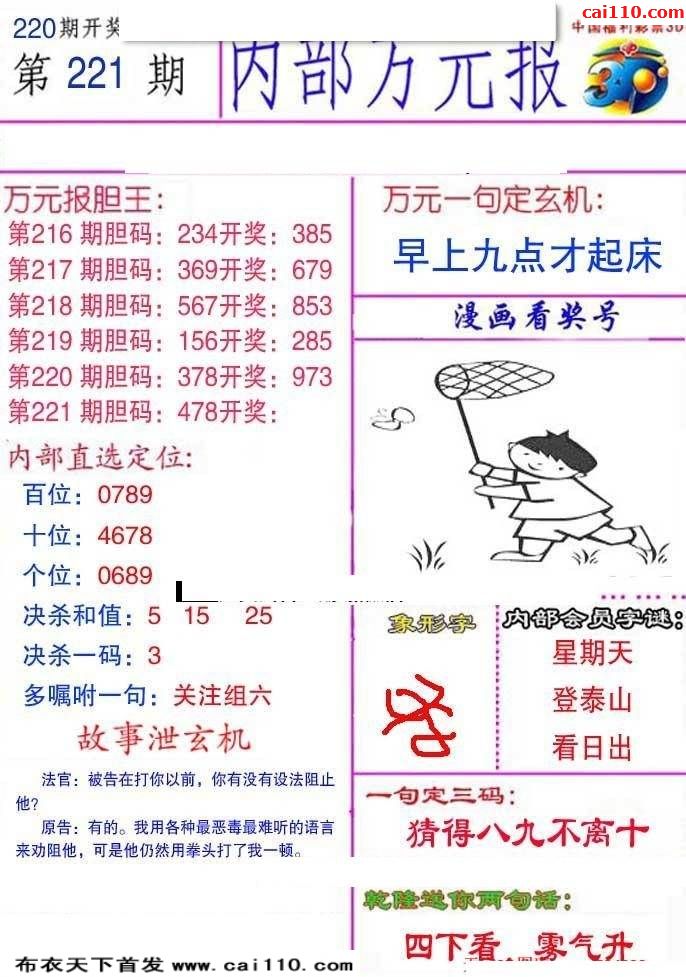 cai110.com
220期开奖
中国福利彩票3D
第 221 期
内部万元报
3D
万元报胆王:
第216 期胆码: 234开奖: 385
第217 期胆码: 369开奖: 679
第218 期胆码: 567开奖: 853
第219 期胆码: 156开奖: 285
第220 期胆码: 378开奖: 973
第221 期胆码: 478开奖:
内部直选定位:
百位: 0789
十位: 4678
个位: 0689
决杀和值: 5 15 25
决杀一码: 3
多嘱咐一句: 关注组六
故事泄玄机
法官: 被告在打你以前, 你有没有设法阻止
他?
原告: 有的。我用各种最恶毒最难听的语言
来劝阻他, 可是他仍然用拳头打了我一顿。
万元一句定玄机:
早上九点才起床
漫画看奖号
象形字
内部会员字谜:
星期天
登泰山
看日出
一句定三码:
猜得八九不离十
乾隆送你两句话:
四下看 雾气升
布衣天下首发 www.cai110.com